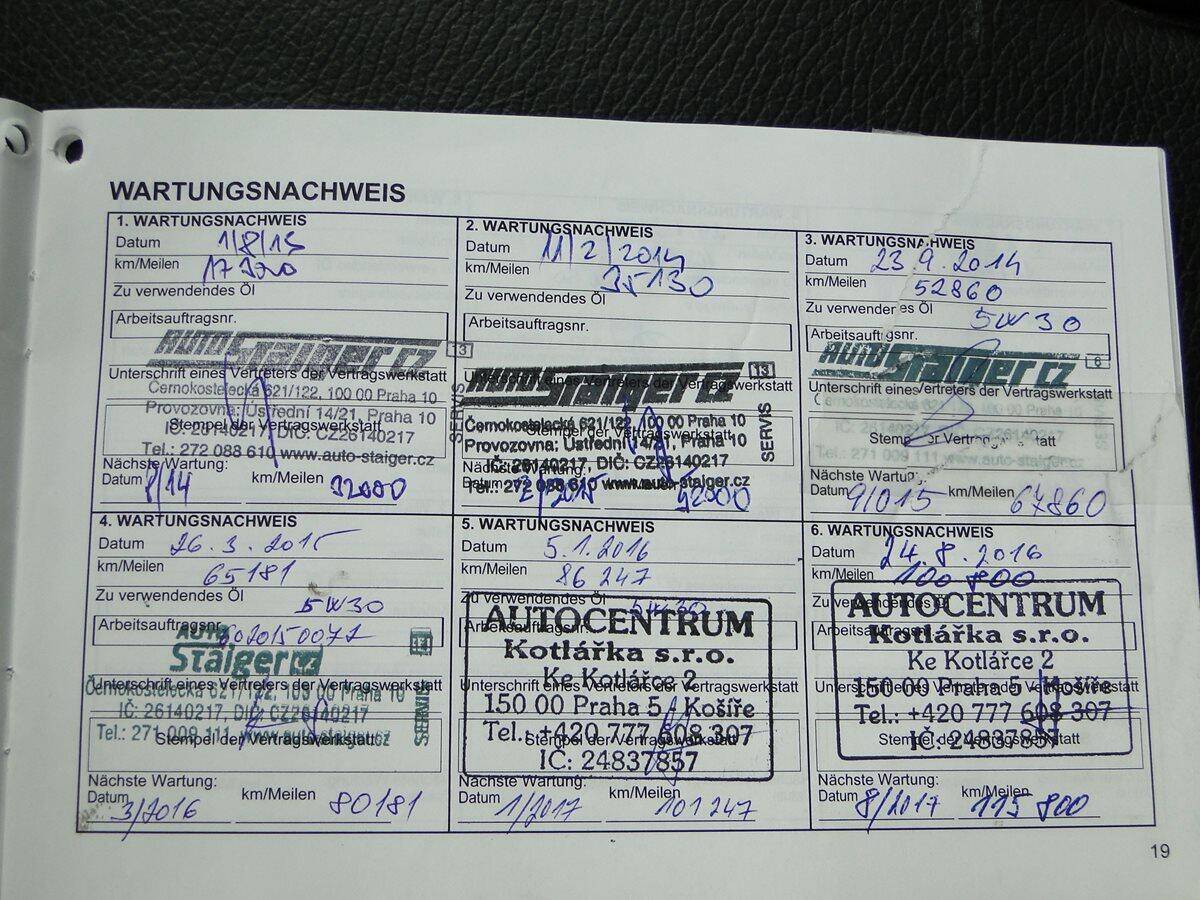 WARTUNGSNACHWEIS
1. WARTUNGSNACHWEIS
Datum 1/8/13
km/Meilen
Zu verwendendes Öl
Arbeitsauftragsnr.
AUTO Staiger cz 13
Unterschrift eines Vertreters der Vertragswerkstatt
Černokostelecká 621/122, 100 00 Praha 10
Provozovna: Ústřední 14/21, Praha 10
Stempel der Vertragswerkstatt
IČ: 26140217, DIČ: CZ26140217
Tel.: 272 088 610 www.auto-staiger.cz
SERVIS
Nächste Wartung:
Datum 8/14 km/Meilen 32000
2. WARTUNGSNACHWEIS
Datum 11/2/2014
km/Meilen 35130
Zu verwendendes Öl
Arbeitsauftragsnr.
AUTO Staiger cz 13
Unterschrift eines Vertreters der Vertragswerkstatt
Černokostelecká 621/122, 100 00 Praha 10
Stempel der Vertragswerkstatt
Provozovna: Ústřední 14/21, Praha 10
IČ: 26140217, DIČ: CZ26140217
Nächste Wartung:
Tel.: 272 088 610 www.auto-staiger.cz
SERVIS
Datum 2/2015 km/Meilen
3. WARTUNGSNACHWEIS
Datum 23.9.2014
km/Meilen 52860
Zu verwendendes Öl
5W30
Arbeitsauftragsnr.
AUTO Staiger cz 6
Unterschrift eines Vertreters der Vertragswerkstatt
Stempel der Vertragswerkstatt
Tel.: 271 009 111 www.auto-staiger.cz
Nächste Wartung:
Datum 9/015 km/Meilen 67860
4. WARTUNGSNACHWEIS
Datum 26.3.2015
km/Meilen 65181
Zu verwendendes Öl
5W30
Arbeitsauftragsnr.
AUTO
Staiger cz
Unterschrift eines Vertreters der Vertragswerkstatt
Černokostelecká 621/122, 100 00 Praha 10
IČ: 26140217, DIČ: CZ26140217
Tel.: 271 009 111 www.auto-staiger.cz
Stempel der Vertragswerkstatt
SERVIS
Nächste Wartung:
Datum 3/2016 km/Meilen 80181
5. WARTUNGSNACHWEIS
Datum 5.1.2016
km/Meilen 86 247
Zu verwendendes Öl 5W30
Arbeitsauftragsnr.
AUTOCENTRUM
Kotlářka s.r.o.
Ke Kotlářce 2
Unterschrift eines Vertreters der Vertragswerkstatt
150 00 Praha 5, Košíře
Tel.: +420 777 608 307
Stempel der Vertragswerkstatt
IČ: 24837857
Nächste Wartung:
Datum 1/2017 km/Meilen 101 247
6. WARTUNGSNACHWEIS
Datum 24.8.2016
km/Meilen 100 800
Zu verwendendes Öl
AUTOCENTRUM
Arbeitsauftragsnr.
Kotlářka s.r.o.
Ke Kotlářce 2
Unterschrift eines Vertreters der Vertragswerkstatt
150 00 Praha 5, Košíře
Tel.: +420 777 608 307
Stempel der Vertragswerkstatt
IČ: 24837857
Nächste Wartung:
Datum 8/2017 km/Meilen 115 800
19